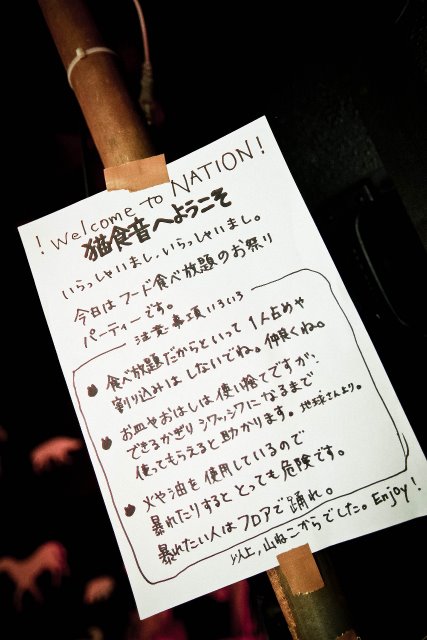 ! Welcome to NATION!
猫食音へようこそ
いらっしゃいまし、いらっしゃいまし。
今日はフード食べ放題のお祭り
パーティーです。
注意事項いろいろ
● 食べ放題だからといって1人占めや
割り込みはしないでね。仲良くね。
● お皿やおはしは使い捨てですが、
できるかぎりシワッシワになるまで
使ってもらえると助かります。地球さんより。
● 火や油を使用しているので
暴れたりするととっても危険です。
暴れたい人はフロアで踊れ。
以上、山ねこからでした。Enjoy!